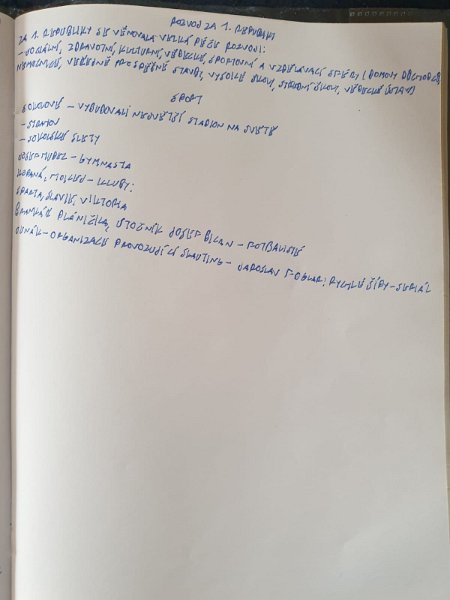 ROZVOJ ZA 1. REPUBLIKY
ZA 1. REPUBLIKY SE VĚNOVALA VELKÁ PÉČE ROZVOJI:
- SOCIÁLNÍ, ZDRAVOTNÍ, KULTURNÍ, VĚDECKÉ, SPORTOVNÍ A VZDĚLÁVACÍ SFÉRY (DOMOVY DŮCHODCŮ,
NEMOCNICE, VEŘEJNĚ PROSPĚŠNÉ STAVBY, VYSOKÉ ŠKOLY, STŘEDNÍ ŠKOLY, VĚDECKÉ ÚSTAVY)
SPORT
SOKOLOVÉ - VYBUDOVALI NEJVĚTŠÍ STADION NA SVĚTĚ
- STRAHOV
- SOKOLSKÉ SLETY
JOSEF - GYMNASTA
KOPANÁ, HOKEJ - KLUBY:
SPARTA, SLAVIE, VIKTORIA
BRANKÁŘ PLÁNIČKA, ÚTOČNÍK JOSEF BICAN - FOTBALISTÉ
JUNÁK - ORGANIZACE PROVOZUJÍCÍ SKAUTING - JAROSLAV FOGLAR: RYCHLÉ ŠÍPY - SERIÁL